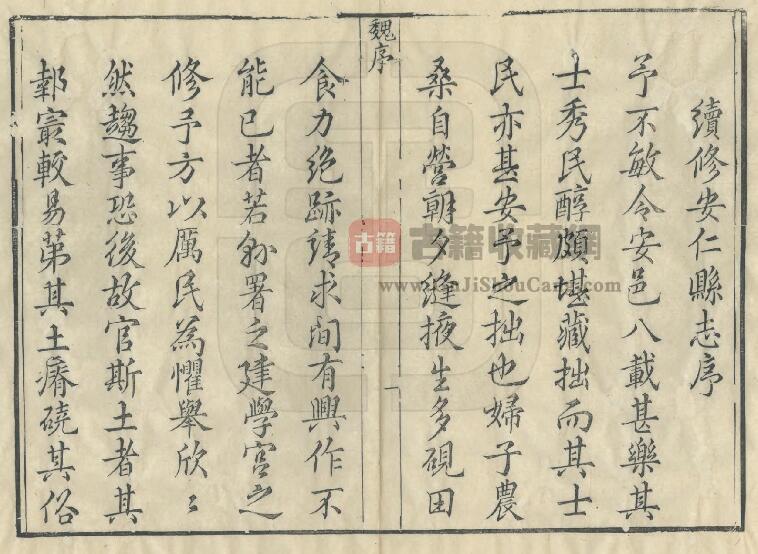 續修安仁縣志序
予不敏令安邑八載甚樂其
士秀民醇頗堪藏拙而其士
民亦甚安予之拙也婦子農
桑自營朝夕縫掖生多硯田
魏序
一
食力絶跡請求間有興作不
能已者若叅署之建學宫之
修予方以厲民為懼舉欣〻
然趨事恐後故官斯土者其
報最較易苐其土瘠磽其俗
古籍
古籍收藏網
www.GuJiShouCang.com